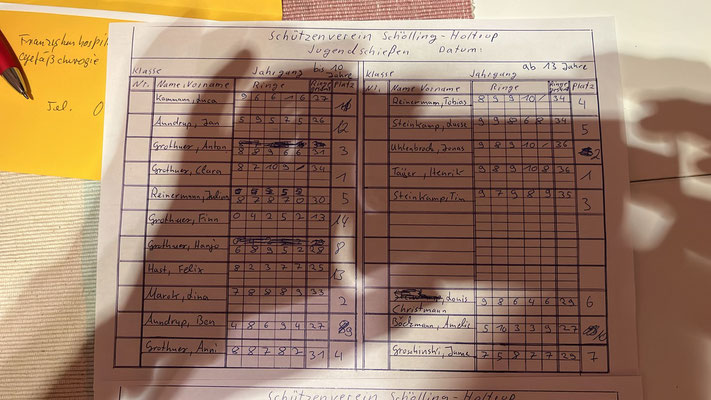 Franziskushospit
Gefäßchirurgie
Tel. 0
Schützenverein Schölling-Holtrup
Jugendschießen Datum:
Klasse Jahrgang bis 10 Jahre
Nr. Name, Vorname Ringe Platz
Luca 9 6 6 1 6 27
Aundrup, Jan 5 9 5 7 5 26 12
Grothues, Anton 31 3
Grothues, Clara 8 7 10 9 / 34 1
Reinermann, Julian 8 7 8 7 0 30 5
Grothues, Finn 0 4 2 5 2 13 14
Grothues, 6 8 9 5 2 28 8
Hast, Felix 8 2 3 7 7 25 13
Marek, Lina 7 8 8 8 9 33 2
Aundrup, Ben 4 8 6 9 4 27
Grothues, Anni 8 8 7 8 2 31 4
Klasse Jahrgang ab 13 Jahre
Nr. Name, Vorname Ringe Platz
Reinermann, Tobias 8 9 9 10 / 34 4
Steinkamp, 9 9 8 6 8 34 5
Uhlenbrock, Jonas 9 8 9 10 / 36 2
Henrik 9 8 9 10 8 36 1
Steinkamp, Tim 9 7 9 8 9 35 3
Janis 9 8 6 4 6 29 6
Christmann
Böckmann, Amelie 5 10 3 3 9 27
7 5 8 7 7 29 7
Schützenverein Schölling-Holtrup